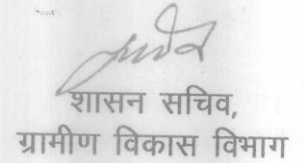 शासन सचिव,
ग्रामीण विकास विभाग